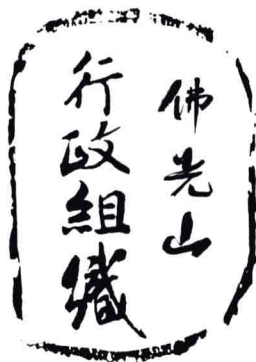 佛光山
行政組織